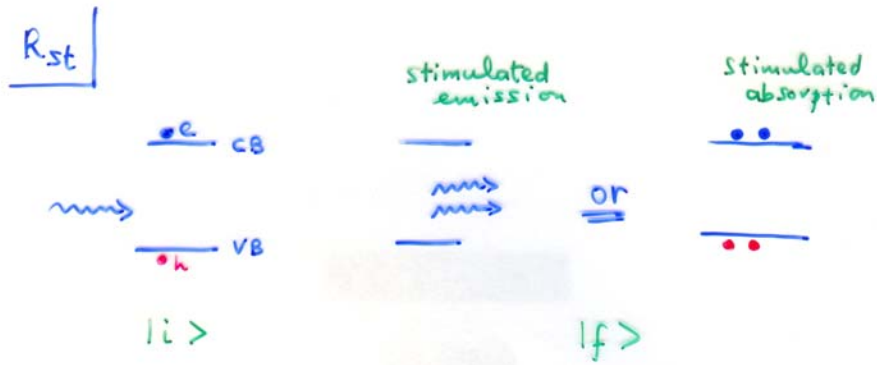 Rst
stimulated
emission
stimulated
absorption
e
CB
or
VB
h
|i>
|f>